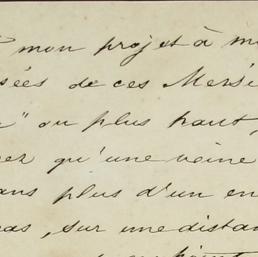 mon projet à m
sées de ces Mersé
" ou plus haut,
ez qu'une veine
ans plus d'un en
as, sur une distan